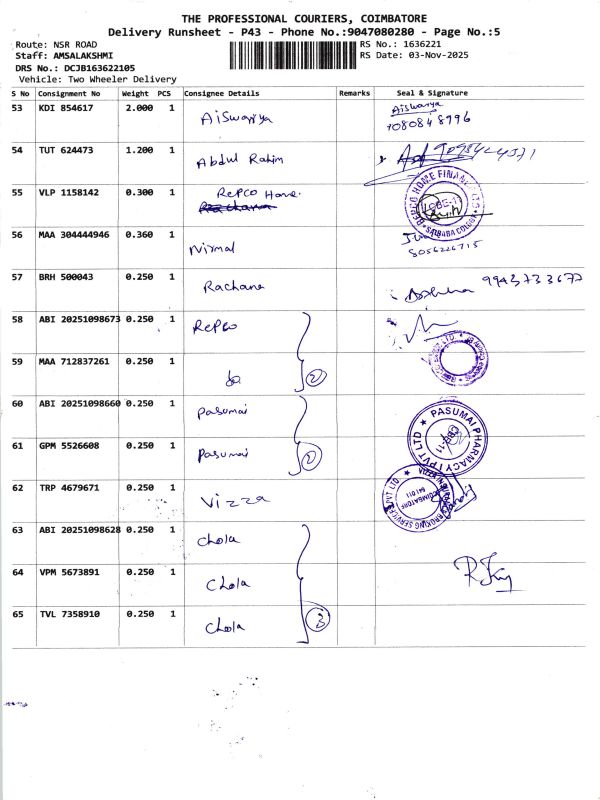 THE PROFESSIONAL COURIERS, COIMBATORE
Delivery Runsheet - P43 - Phone No.:9047080280 - Page No.:5
Route: NSR ROAD RS No.: 1636221
Staff: AMSALAKSHMI RS Date: 03-Nov-2025
DRS No.: DCJB163622105
Vehicle: Two Wheeler Delivery
S No Consignment No Weight PCS Consignee Details Remarks Seal & Signature
53 KDI 854617 2.000 1 Aiswarya Aiswarya
7080848996
54 TUT 624473 1.200 1 Abdul Rahim
55 VLP 1158142 0.300 1 Repco Home.
Rachana
REPCO HOME FINANCE LTD
CBE-11
SAIBABA COLONY
56 MAA 304444946 0.360 1 Nirmal
8056226715
57 BRH 500043 0.250 1 Rachana 9943733677
58 ABI 20251098673 0.250 1 Repco
59 MAA 712837261 0.250 1 do 2
60 ABI 20251098660 0.250 1 Pasumai
PASUMAI PHARMACY PVT LTD
CBE-11
61 GPM 5526608 0.250 1 Pasumai 2
62 TRP 4679671 0.250 1 Vizza
COIMBATORE
641 011
63 ABI 20251098628 0.250 1 Chola
64 VPM 5673891 0.250 1 Chola
65 TVL 7358910 0.250 1 Chola 3